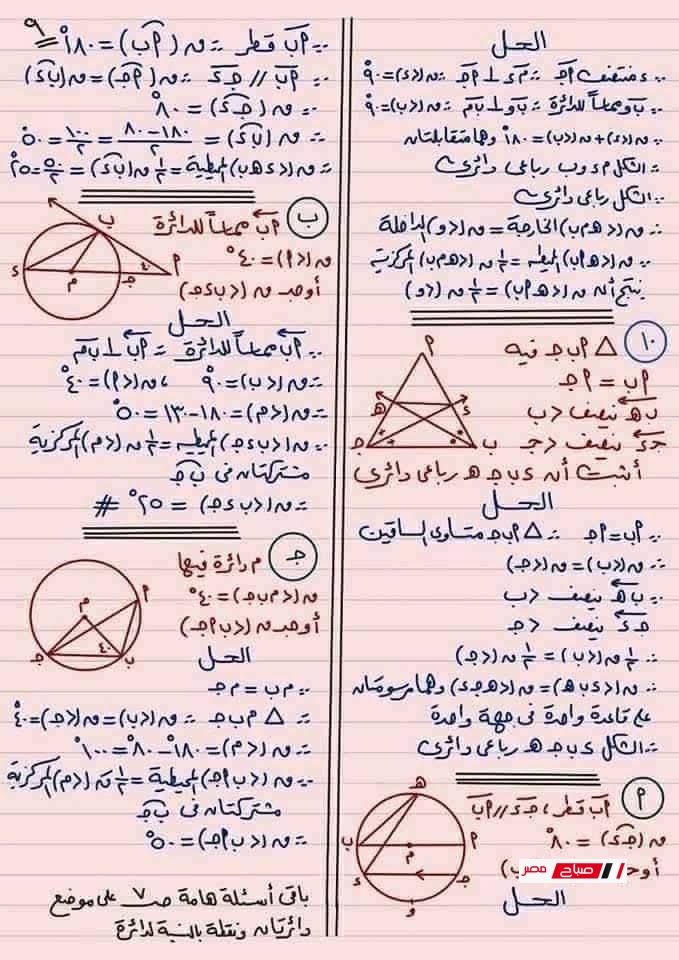 الحل
∵ د منتصف أج ∴ م د ⊥ أج ∴ ق(<د) = ٩٠°
∵ ب و مماساً للدائرة ∴ ب و ⊥ ب م ∴ ق(<ب) = ٩٠°
∵ ق(<د) + ق(<ب) = ١٨٠° وهما متقابلتان
∴ الشكل م د و ب رباعى دائرى
∵ الشكل رباعى دائرى
∴ ق(<هـ م ب) الخارجة = ق(<و) الداخلة
∵ ق(<هـ أ ب) المحيطية = ١/٢ ق(<هـ م ب) المركزية
ينتج أن ق(<هـ أ ب) = ١/٢ ق(<و)
١٠ △ أ ب جـ فيه
أ ب = أ جـ
ب هـ ينصف <ب
جـ د ينصف <جـ
أثبت أن د ب جـ هـ رباعى دائرى
أ
هـ د
جـ ب
الحل
∵ أ ب = أ جـ ∴ △ أ ب جـ متساوى الساقين
∴ ق(<ب) = ق(<جـ)
∵ ب هـ ينصف <ب
جـ د ينصف <جـ
∴ ١/٢ ق(<ب) = ١/٢ ق(<جـ)
∴ ق(<د ب هـ) = ق(<هـ جـ د) وهما مرسومتان
على قاعدة واحدة فى جهة واحدة
∴ الشكل د ب جـ هـ رباعى دائرى
أ أ ب قطر ، جـ د // أ ب
ق(جـ د) = ٨٠°
أوجـ ب)
صباح مصر
هـ
ب م أ
د جـ
و
الحل
٩
∵ أ ب قطر ∴ ق(أ ب) = ١٨٠°
∵ أ ب // جـ د ∴ ق(أ جـ) = ق(ب د)
∵ ق(جـ د) = ٨٠°
∴ ق(ب د) = (١٨٠ − ٨٠)/٢ = ١٠٠/٢ = ٥٠°
∴ ق(<د هـ ب) المحيطية = ١/٢ ق(ب د) = ٥٠/٢ = ٢٥°
ب أ ب مماساً للدائرة
ق(<أ) = ٤٠°
أوجد ق(<ب د جـ)
ب
د م جـ ٤٠ أ
الحل
∵ أ ب مماساً للدائرة ∴ أ ب ⊥ ب م
∴ ق(<ب) = ٩٠° ، ق(<أ) = ٤٠°
∴ ق(<م) = ١٨٠ − ١٣٠ = ٥٠°
∵ ق(<ب د جـ) المحيطية = ١/٢ ق(<م) المركزية
مشتركتان فى ب جـ
∴ ق(<ب د جـ) = ٢٥° #
جـ م دائرة فيها
ق(<م ب جـ) = ٤٠°
أوجد ق(<ب أ جـ)
م أ
جـ ٤٠ ب
الحل
∵ م ب = م جـ
∴ △ م ب جـ ∴ ق(<ب) = ق(<جـ) = ٤٠°
∴ ق(<م) = ١٨٠° − ٨٠° = ١٠٠°
∵ ق(<ب أ جـ) المحيطية = ١/٢ ق(<م) المركزية
مشتركتان فى ب جـ
∴ ق(<ب أ جـ) = ٥٠°
باقى أسئلة هامة صـ ٧ على موضع
دائرتان ونقطة بالنسبة لدائرة